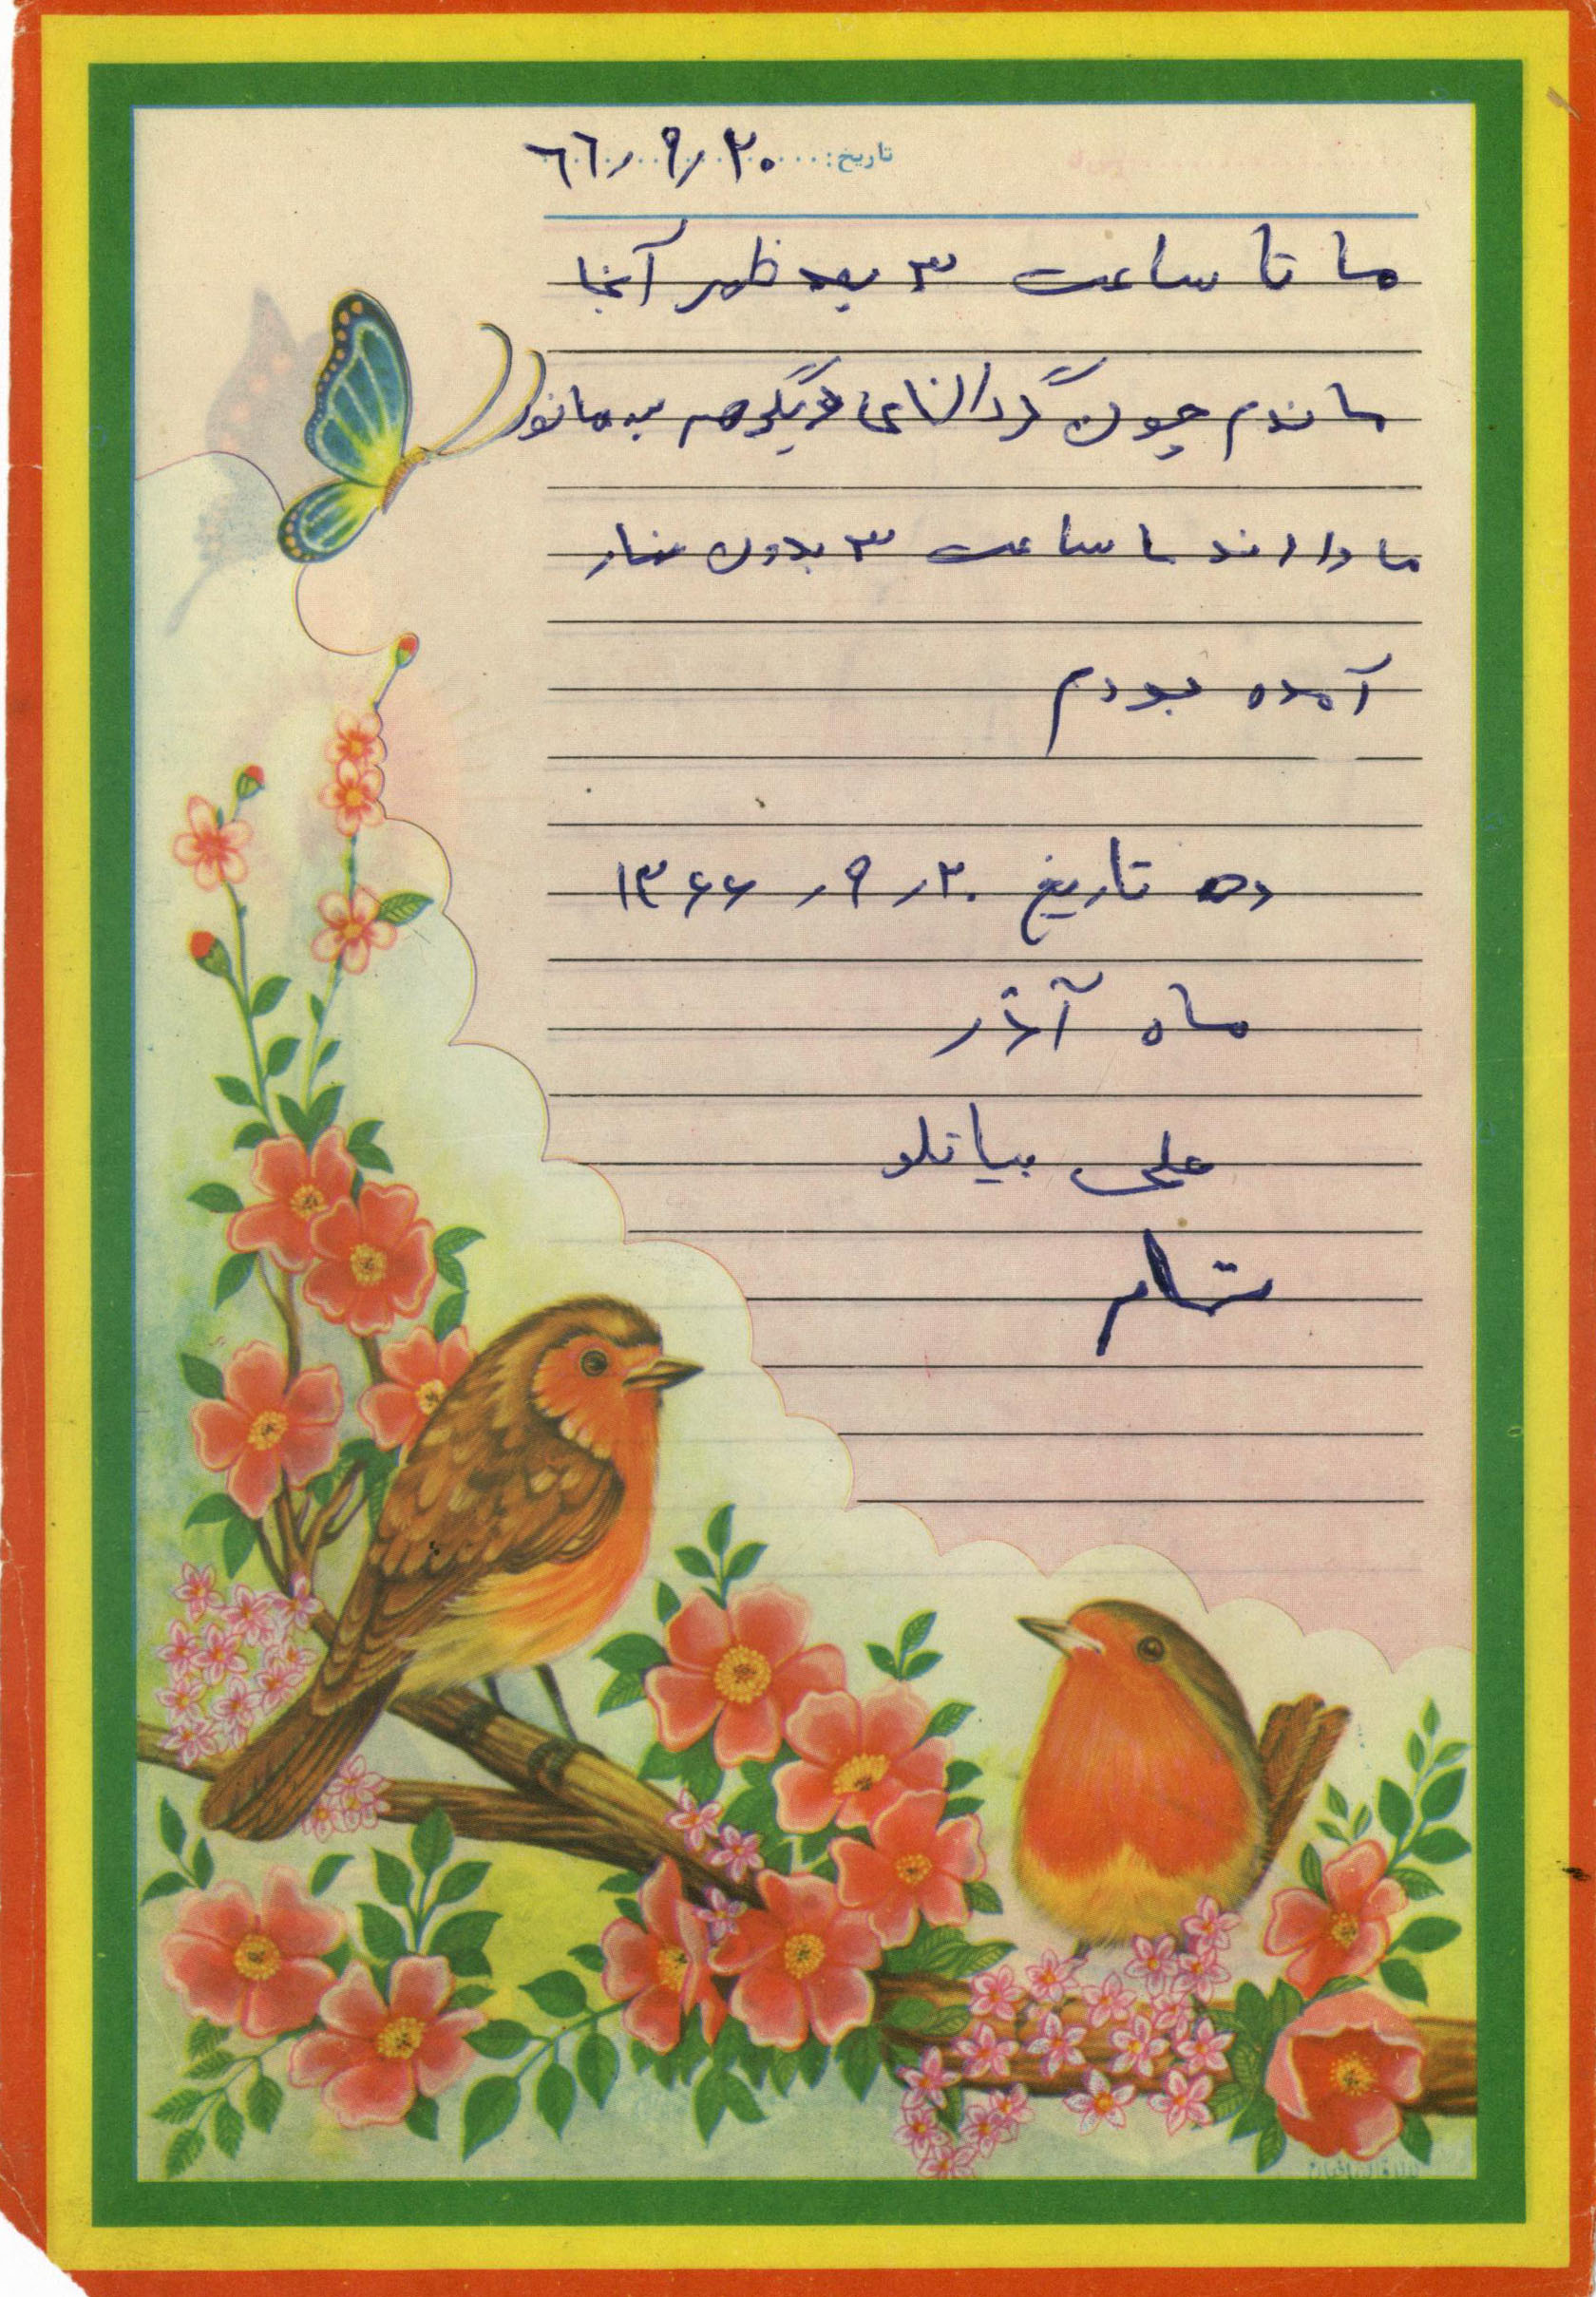 تاریخ: ۶۶/۹/۲۰
ما تا ساعت ۳ بعد ظهر آنجا
ماندم چون گردانهای دیگر هم به مانور
ما ساعت ۳ بدون
آمده بودم
تاریخ ۲۰/۹/۱۳۶۶
ماه آذر
علی بیاتلو
تمام